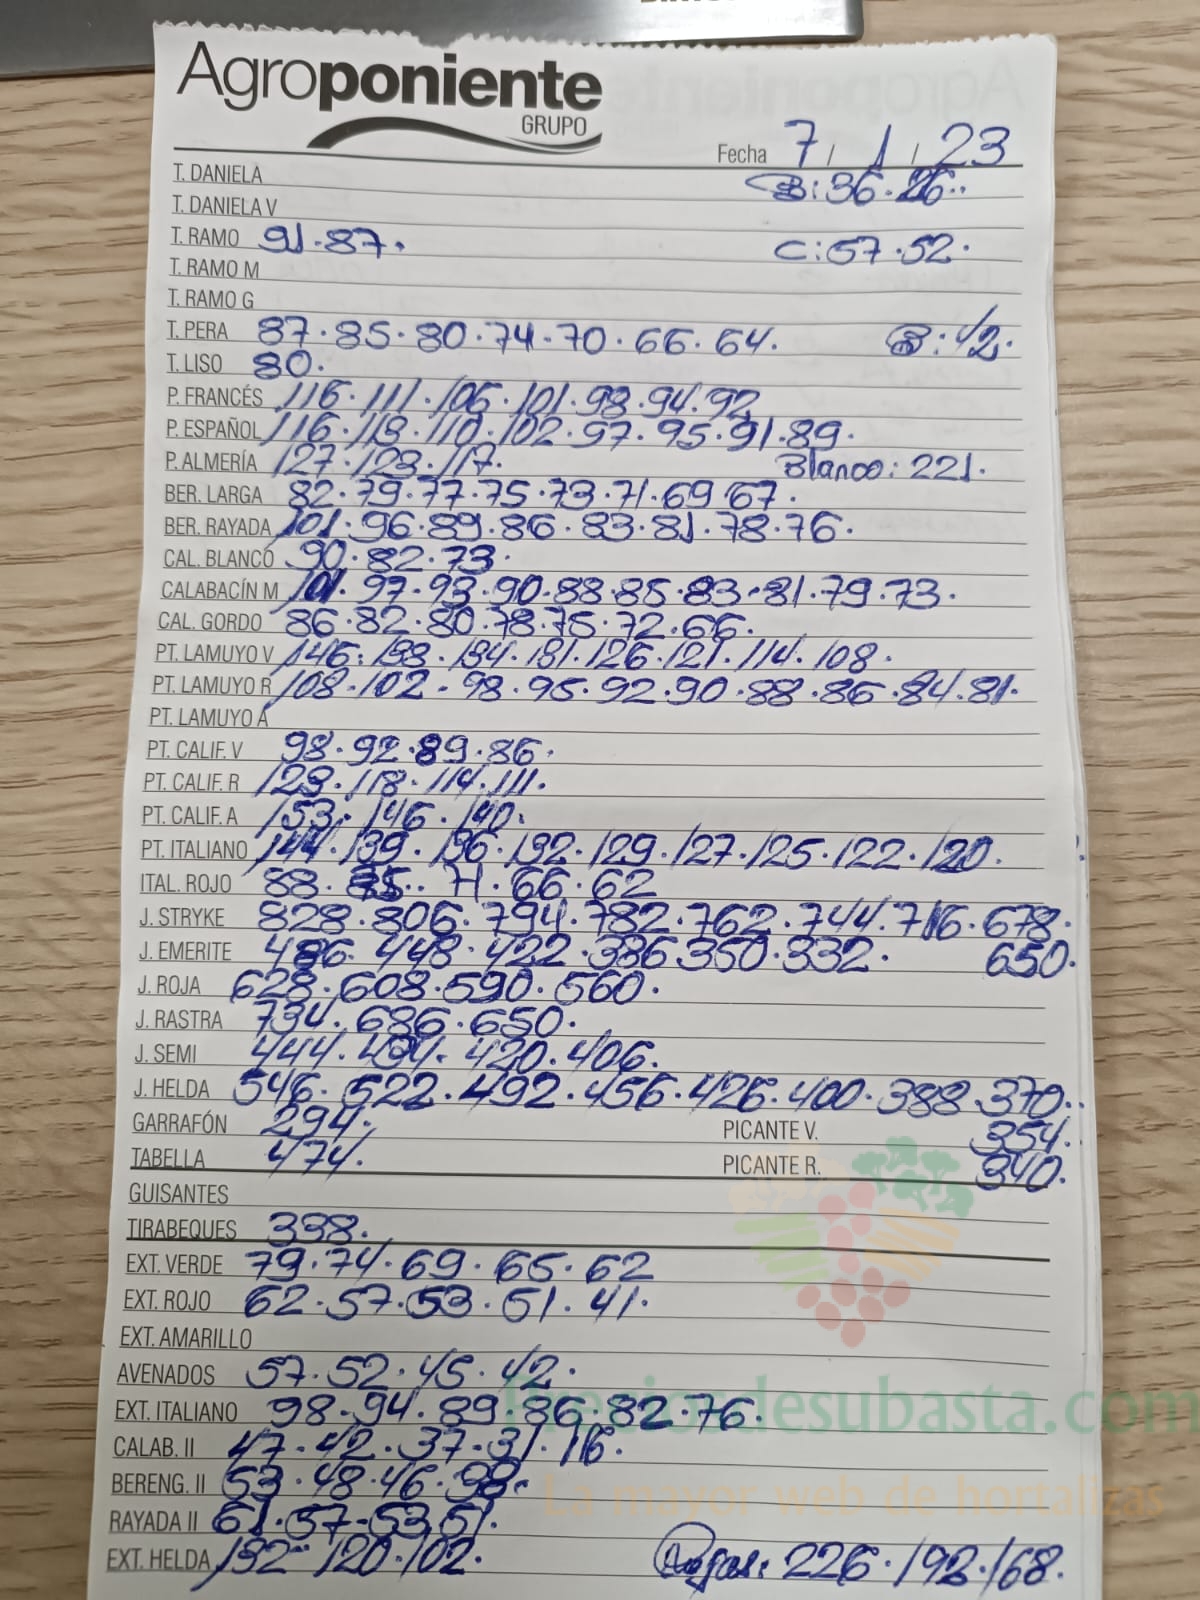 Agroponiente
GRUPO
Fecha 7 / 1 / 23
T. DANELA B: 36. 26..
T. DANIELA V
T. RAMO 91. 87. C: 57. 52.
T. RAMO M
T. RAMO G
T. PERA 87. 85. 80. 74. 70. 66. 64. B: 42.
T. LISO 80.
P. FRANCÉS 116. 111. 106. 101. 98. 94. 92
P. ESPAÑOL 116. 113. 110. 102. 97. 95. 91. 89.
P. ALMERÍA 127. 123. 117. Blanco: 221.
BER. LARGA 82. 79. 77. 75. 73. 71. 69 67.
BER. RAYADA 101. 96. 89. 86. 83. 81. 78. 76.
CAL. BLANCO 90. 82. 73.
CALABACÍN M 101. 97. 93. 90. 88. 85. 83. 81. 79. 73.
CAL. GORDO 86. 82. 80. 78. 75. 72. 66.
PT. LAMUYO V 146. 138. 134. 131. 126. 121. 114. 108.
PT. LAMUYO R 108. 102. 98. 95. 92. 90. 88. 86. 84. 81.
PT. LAMUYO A
PT. CALIF. V 98. 92. 89. 86.
PT. CALIF. R 123. 118. 114. 111.
PT. CALIF. A 153. 146. 140.
PT. ITALIANO 144. 139. 136. 132. 129. 127. 125. 122. 120.
ITAL. ROJO 88. 71. 66. 62
J. STRYKE 828. 806. 794. 782. 762. 744. 716. 678.
J. EMERITE 486. 448. 422. 386 350. 332. 650.
J. ROJA 628. 608. 590. 560.
J. RASTRA 734. 686. 650.
J. SEMI 444. 434. 420. 406.
J. HELDA 546. 522. 492. 456. 426. 400. 388. 370..
GARRAFÓN 294. PICANTE V. 354.
TABELLA 474. PICANTE R. 340.
GUISANTES
TIRABEQUES 338.
EXT. VERDE 79. 74. 69. 65. 62
EXT. ROJO 62. 57. 53. 51. 41.
EXT. AMARILLO
AVENADOS 57. 52. 45. 42.
EXT. ITALIANO 98. 94. 89. 86. 82. 76.
Preciosdesubasta.com
CALAB. II 47. 42. 37. 31. 16.
BERENG. II 53. 48. 46. 38.
La mayor web de hortalizas
RAYADA II 61. 57. 53. 51.
EXT. HELDA 132. 120. 102. Rojas: 226. 192. 168.